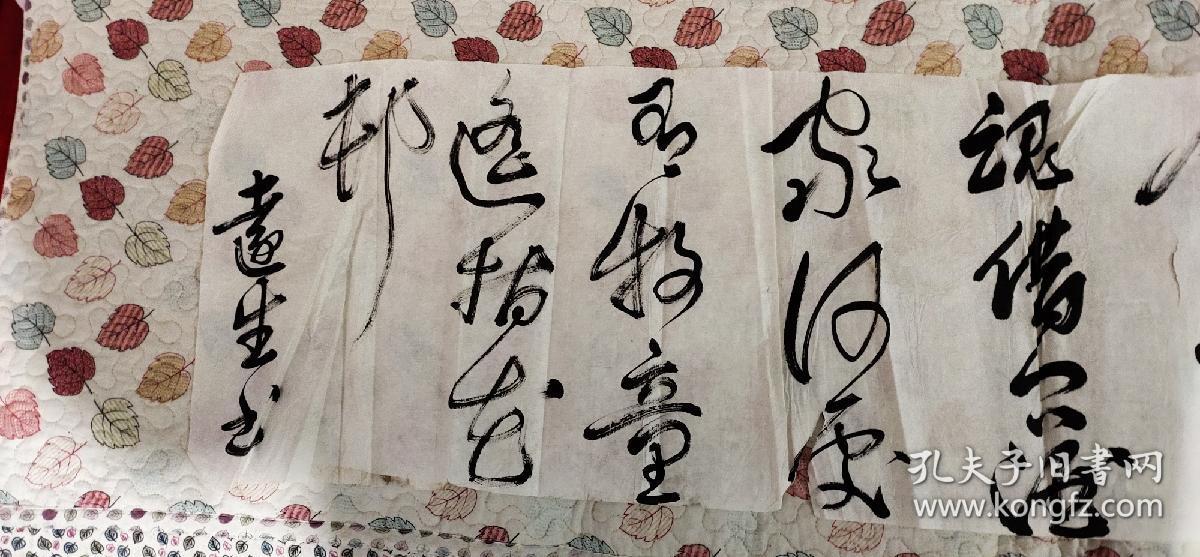 魂借问酒
家何处
有牧童
遥指杏花
邨
远生书
孔夫子旧书网
www.kongfz.com